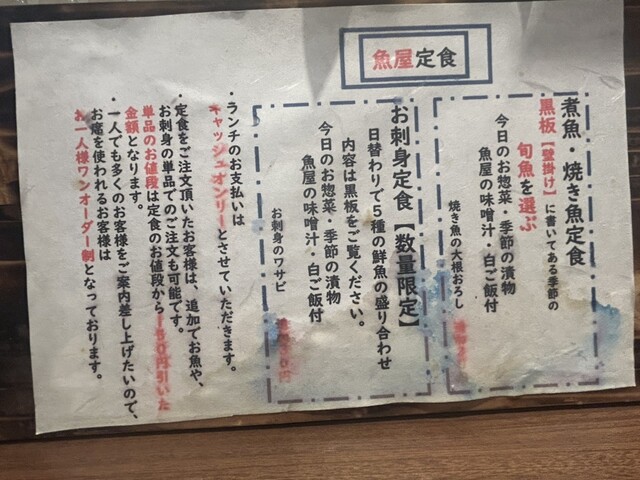 魚屋定食
煮魚・焼き魚定食
黒板【壁掛け】に書いてある季節の
旬魚を選ぶ
今日のお惣菜・季節の漬物
魚屋の味噌汁・白ご飯付
焼き魚の大根おろし
お刺身定食【数量限定】
日替わりで５種の鮮魚の盛り合わせ
内容は黒板をご覧ください。
今日のお惣菜・季節の漬物
魚屋の味噌汁・白ご飯付
お刺身のワサビ
・ランチのお支払いは
キャッシュオンリーとさせていただきます。
・定食をご注文頂いたお客様は、追加でお魚や、
お刺身の単品でのご注文も可能です。
単品のお値段は定食のお値段から
円引いた
金額となります。
・一人でも多くのお客様をご案内差し上げたいので、
お席を使われるお客様は
お一人様ワンオーダー制となっております。